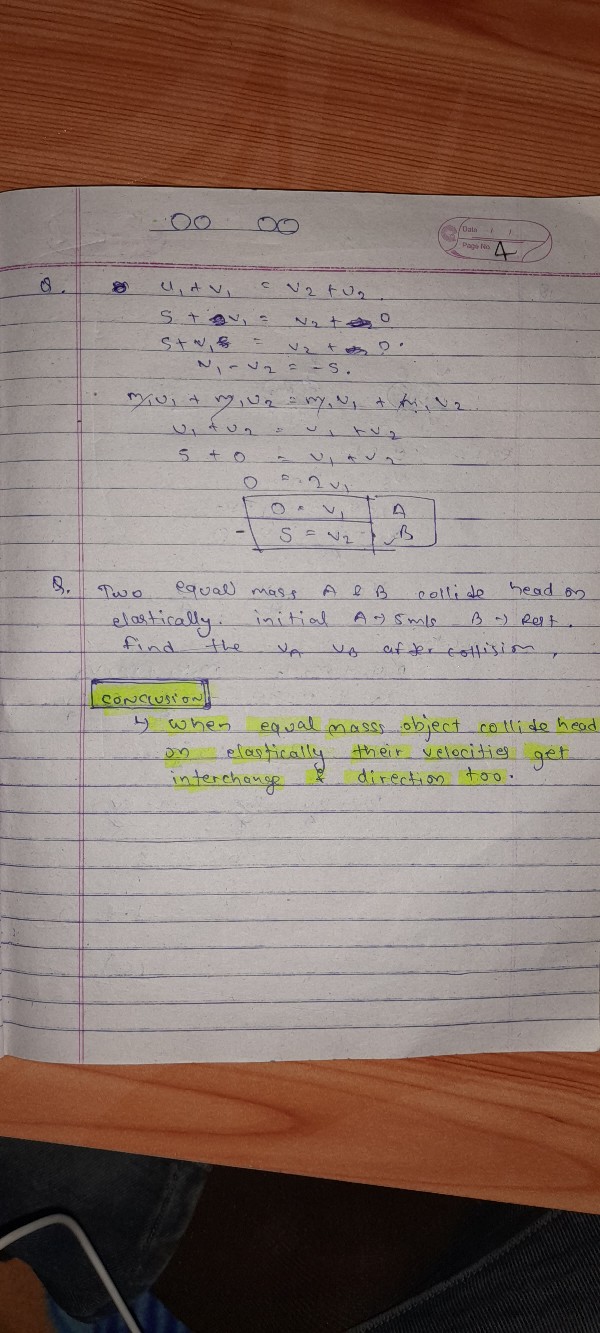 OO OO
Date / /
Page No. 4
Q. u₁ + v₁ = v₂ + u₂.
5 + v₁ = v₂ + 0
5 + v₁ = v₂ + 0.
v₁ - v₂ = -5.
m₁u₁ + m₁u₂ = m₁v₁ + m₁v₂
u₁ + u₂ = v₁ + v₂
5 + 0 = v₁ + v₂
0 = 2v₁
0 = v₁ A
- 5 = v₂ B
Q. Two equal mass A & B collide head on
elastically. initial A → 5m/s B → Rest.
find the vA vB after collision.
CONCLUSION
↳ when equal masss object collide head
on elastically their velocities get
interchange & direction too.